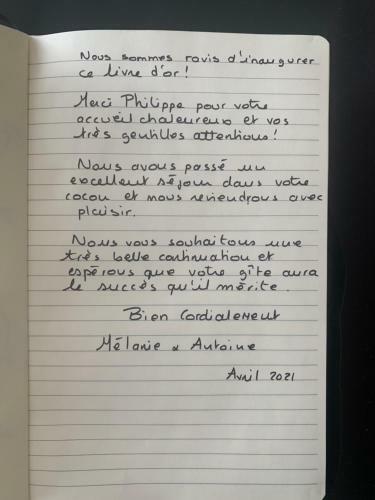 Nous sommes ravis d'inaugurer
ce livre d'or !
Merci Philippe pour votre
accueil chaleureux et vos
très gentilles attentions !
Nous avons passé un
excellent séjour dans votre
cocon et nous reviendrons avec
plaisir.
Nous vous souhaitons une
très belle continuation et
espérons que votre gîte aura
le succès qu'il mérite.
Bien Cordialement
Mélanie & Antoine
Avril 2021